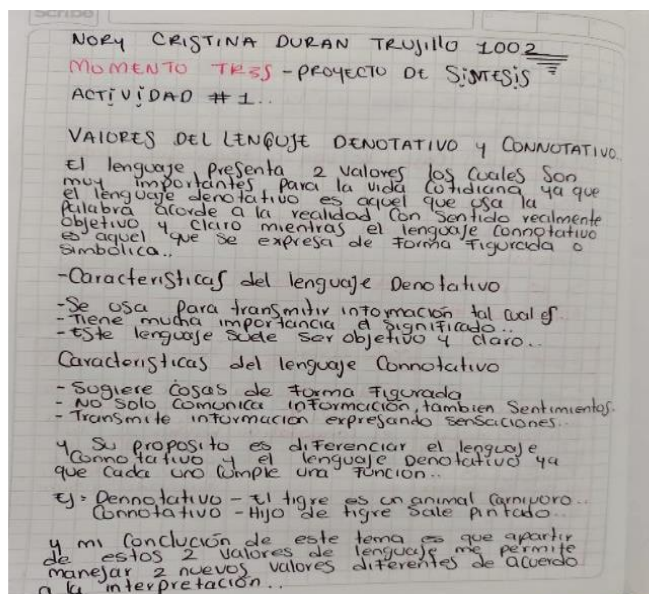 Scribe
NORY CRISTINA DURAN TRUJIllO 1002
MOMENTO TR3S - PROYECTO DE SíNTESIS
ACTíViDAD #1..
VAlORES DEL LENGUJE DENOTATIVO y CONNOTATIVO.
El lenguaje presenta 2 valores los cuales son
muy importantes para la vida cotidiana ya que
el lenguaje denotativo es aquel que usa la
palabra acorde a la realidad con sentido realmente
objetivo y claro mientras el lenguaje connotativo
es aquel que se expresa de forma figurada o
simbolica..
-Caracteristicas del lenguaje Denotativo
-Se usa para transmitir informacion tal cual es.
-Tiene mucha importancia el significado..
-Este lenguaje suele ser objetivo y claro..
Caracteristicas del lenguaje Connotativo
- Sugiere cosas de forma figurada
- NO solo comunica información, tambien Sentimientos.
- Transmite informacion expresando sensaciones..
y su proposito es diferenciar el lenguaje
Connotativo y el lenguaje Denotativo ya
que cada uno cumple una funcion..
Ej: Dennotativo - El tigre es un animal carnivoro..
Connotativo - Hijo de tigre sale pintado..
y mi conclución de este tema es que apartir
de estos 2 valores de lenguaje me permite
manejar 2 nuevos valores diferentes de acuerdo
a la interpretación..